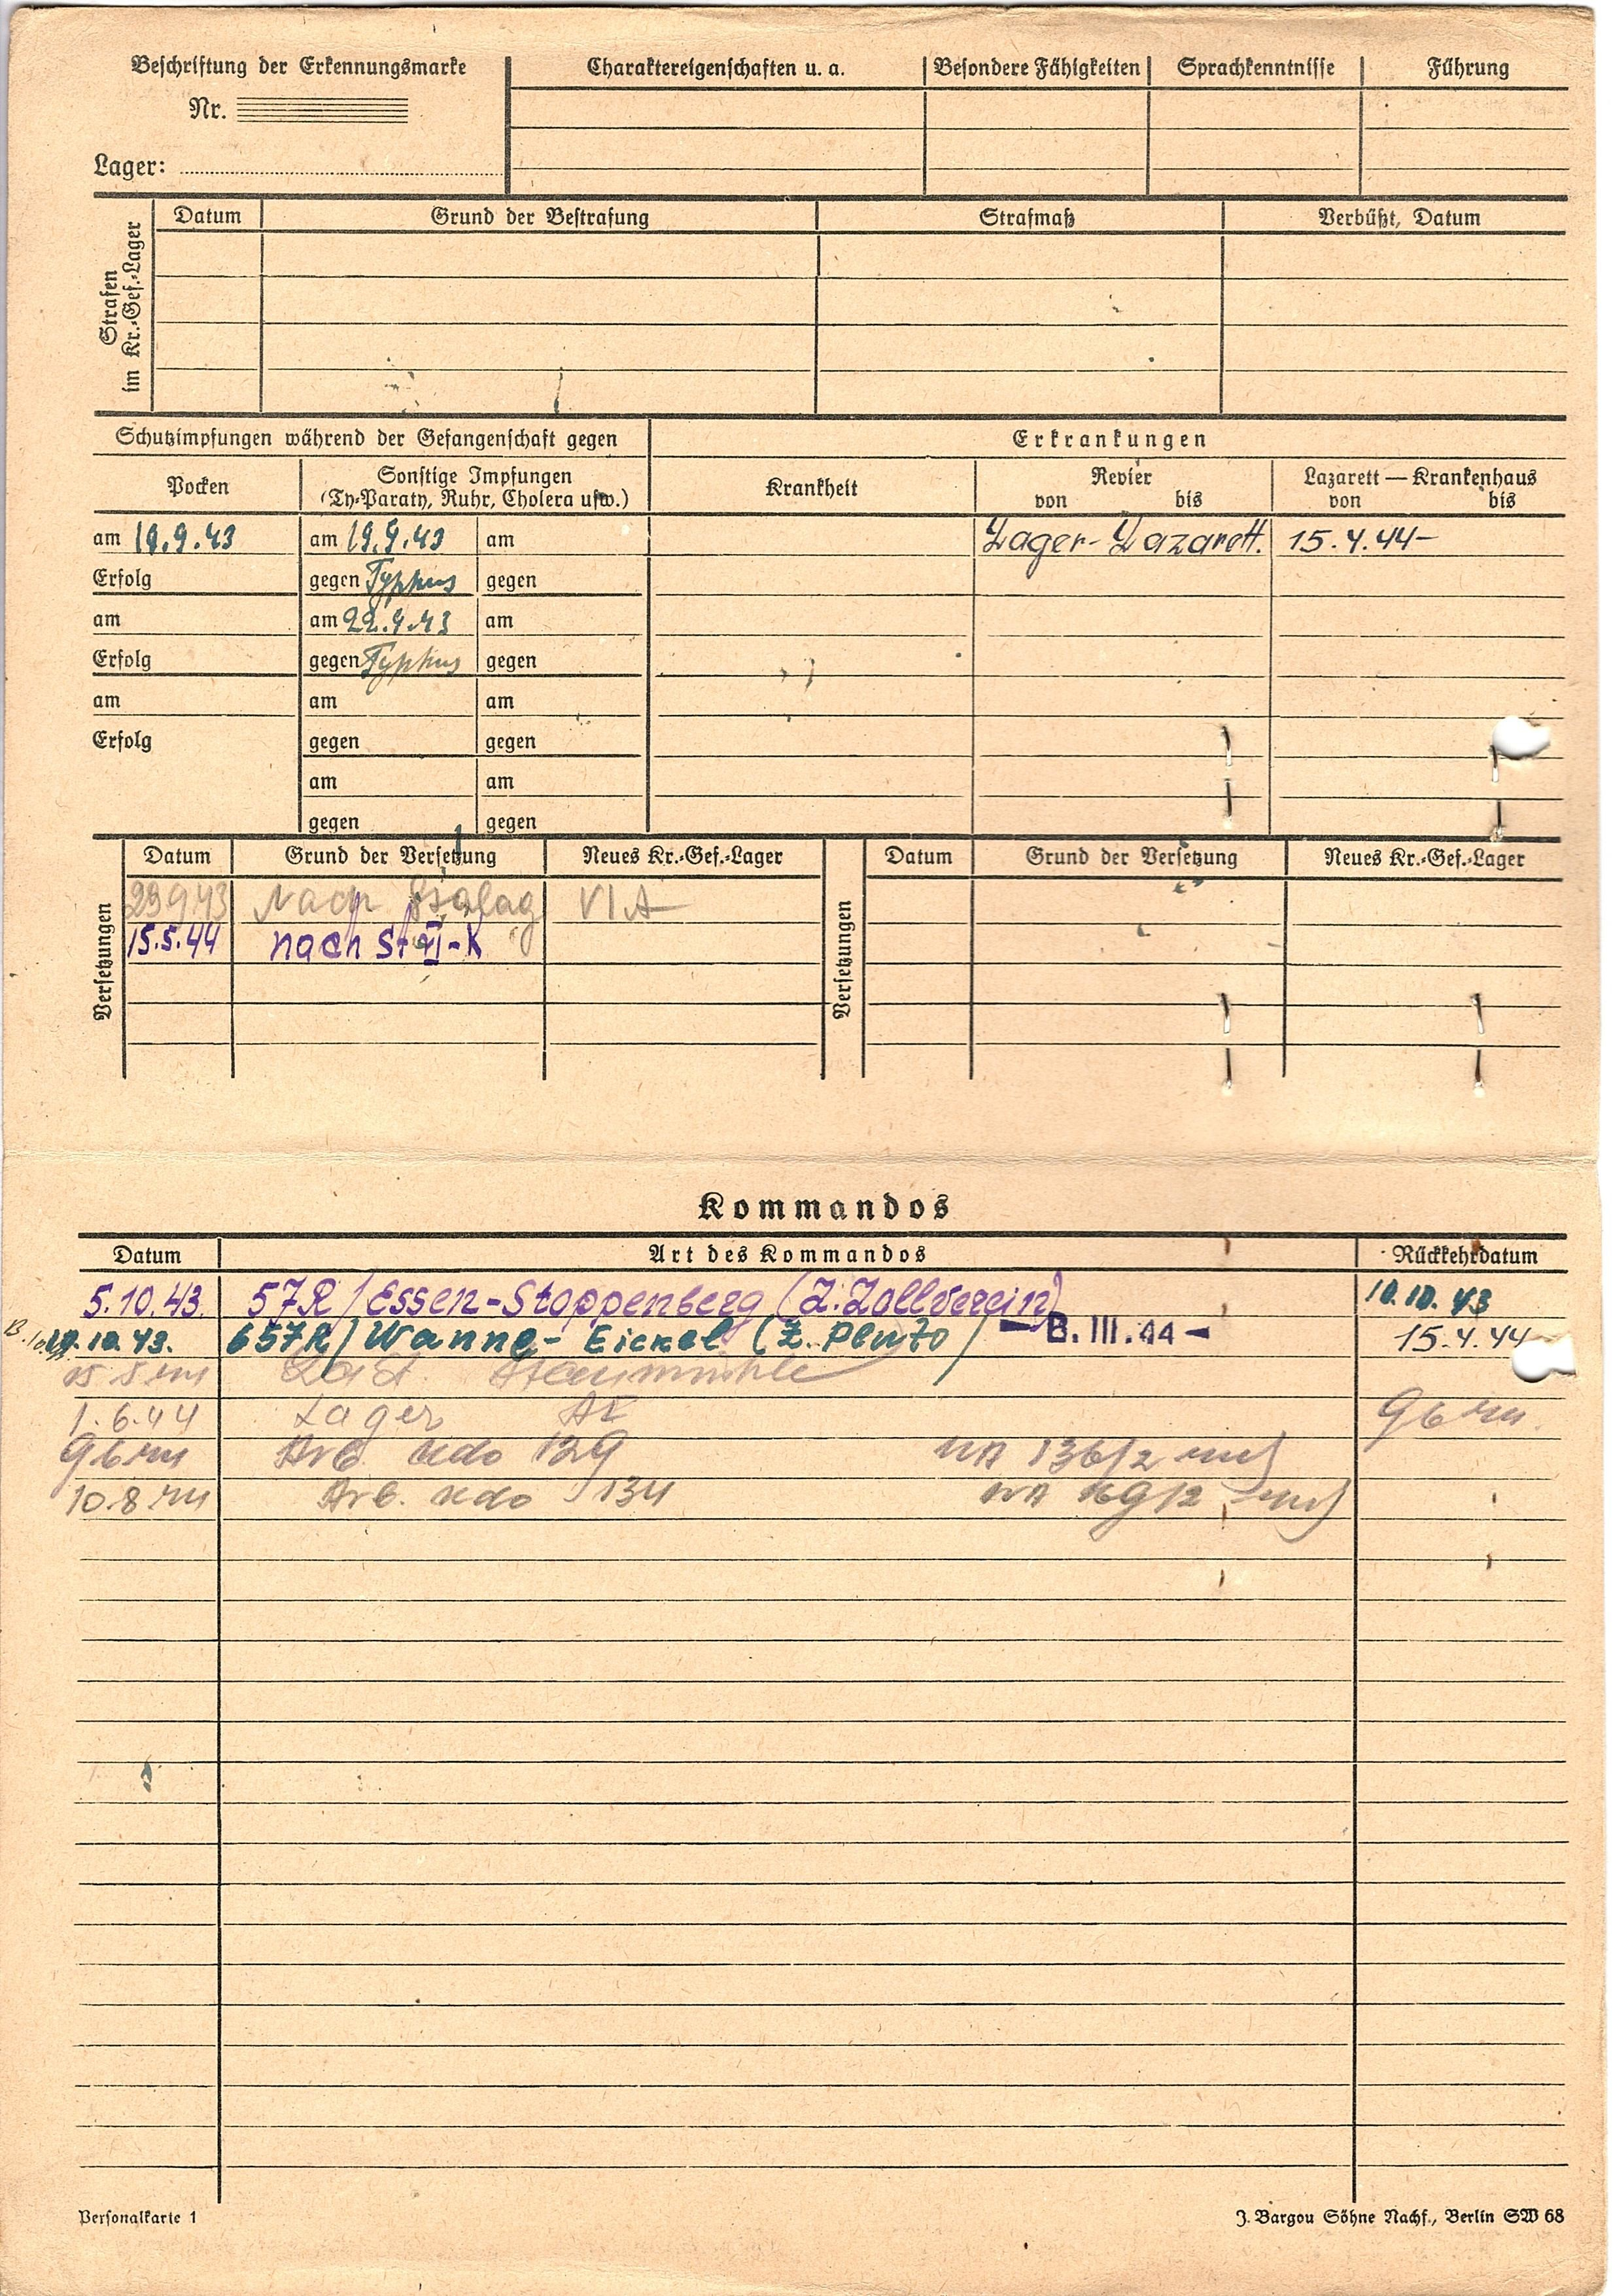 Beschriftung der Erkennungsmarke
Nr.
Lager:
Charaktereigenschaften u. a. Besondere Fähigkeiten Sprachkenntnisse Führung
Strafen im Kr.-Gef.-Lager
Datum Grund der Bestrafung Strafmaß Verbüßt, Datum
Schutzimpfungen während der Gefangenschaft gegen Erkrankungen
Pocken Sonstige Impfungen Krankheit Revier Lazarett — Krankenhaus
(Ty-Paraty, Ruhr, Cholera usw.) von bis von bis
am 19.9.43 am 19.9.43 am Lager-Lazarett. 15.4.44-
Erfolg gegen Typhus gegen
am am 22.9.43 am
Erfolg gegen Typhus gegen
am am am
Erfolg gegen gegen
am am
gegen gegen
Versetzungen
Datum Grund der Versetzung Neues Kr.-Gef.-Lager
29 9 43 Nach Stalag VI A
15.5.44 nach St VI-K
Versetzungen
Datum Grund der Versetzung Neues Kr.-Gef.-Lager
Kommandos
Datum Art des Kommandos Rückkehrdatum
5.10.43. 57R/Essen-Stoppenberg (Z.Zollverein) 10.10.43
10.43. 657R/Wanne-Eickel (Z. Pluto) - B. III. 44 - 15.4.44
15 5 44 Staumühle
1.6.44 Lager 9 6 44.
9 6 44 Arb. Kdo 129 136/2
10.8 44 Arb. Kdo 134
Personalkarte 1
J. Bargou Söhne Nachf., Berlin SW 68